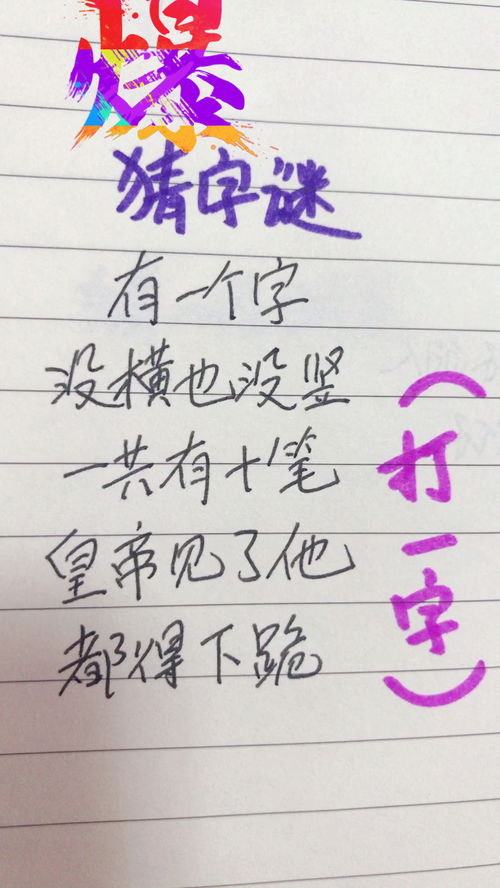 爆
猜字谜
有一个字
没横也没竖
一共有十笔
皇帝见了他
都得下跪
（打一字）